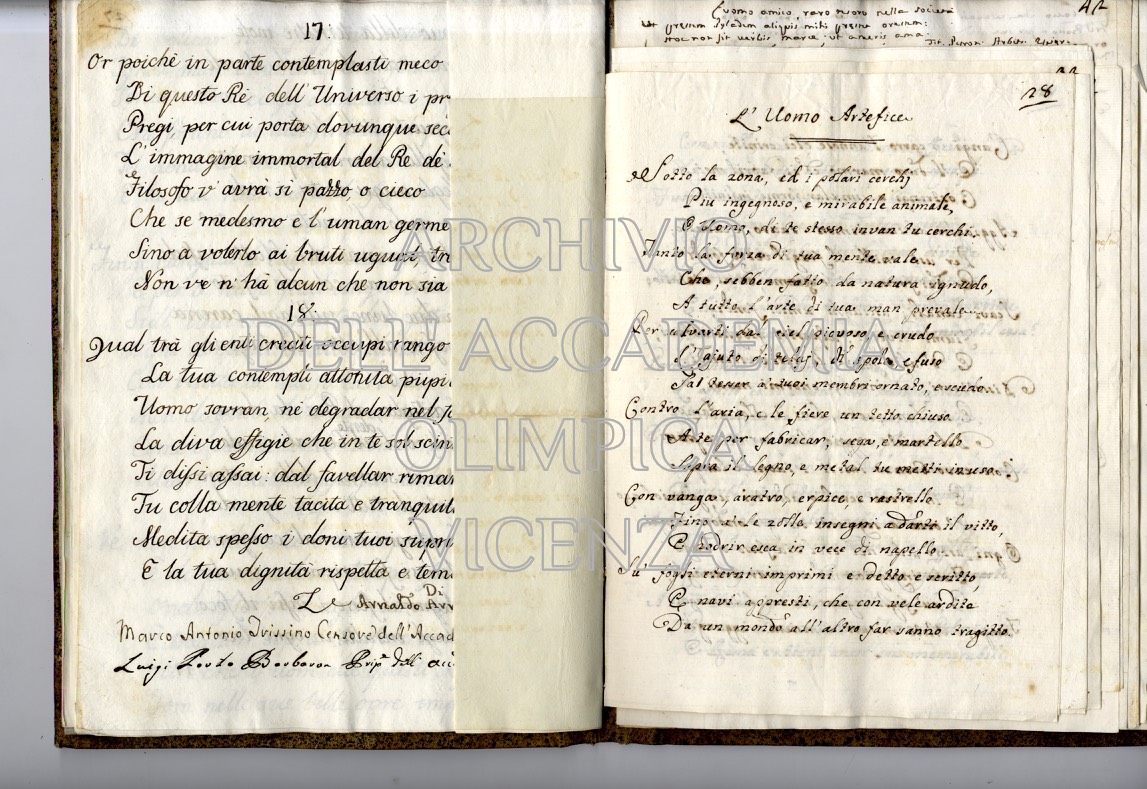 17.
Or poichè in parte contemplasti meco
Di questo Rè dell'Universo i pr
Pregi, per cui porta dovunque sec
L'immagine immortal del Rè dè
Filosofo v'avrà sì pazzo, o cieco
Che se medesmo e l'uman germe
Sino a volerlo ai bruti ugual
Non ve n'hà alcun che non sia
18.
Qual trà gli enti creati occupi rango
La tua contempli attonita pupil
Uomo sovran, nè degradar nel
La diva effigie che in te sol scin
Ti dissi assai: dal favellar riman
Tu colla mente tacita e tranquil
Medita spesso i doni tuoi supr
E la tua dignità rispetta e tem
Di
Arnaldo Arn
Marco Antonio Trissino Censore dell'Accad
Luigi Porto Barbaran Prip.e dell' acc
L'uomo amico, raro nella società
42
28
L'Uomo Artefice
Sotto la zona, ed i polari cerchj
Più ingegnoso, e mirabile animale,
O Uomo, di te stesso invan tu cerchi.
Tanto la forza di tua mente vale
Che, sebben fatto da natura ignudo,
A tutto l'arte di tua man prevale.
Per ciel piovoso, e crudo
L'ajuto di telaj, di spola, e fuso
Tal tesser a' tuoi membri ornato, e scudo.
Contro l'aria, e le fiere un tetto chiuso
A te per fabricar, sega, e martello
Sopra il legno, e metal tu metti in uso.
Con vanga, aratro, erpice, e rastrello
Fino a le zolle insegni a darti il vitto,
E nodrir esca in vece di napello.
Su fogli eterni imprimi e detto, e scritto,
E navi appresti, che con vele ardite
Da un mondo all'altro far sanno tragitto.
ARCHIVIO
DELL'ACCADEMIA
OLIMPICA
VICENZA